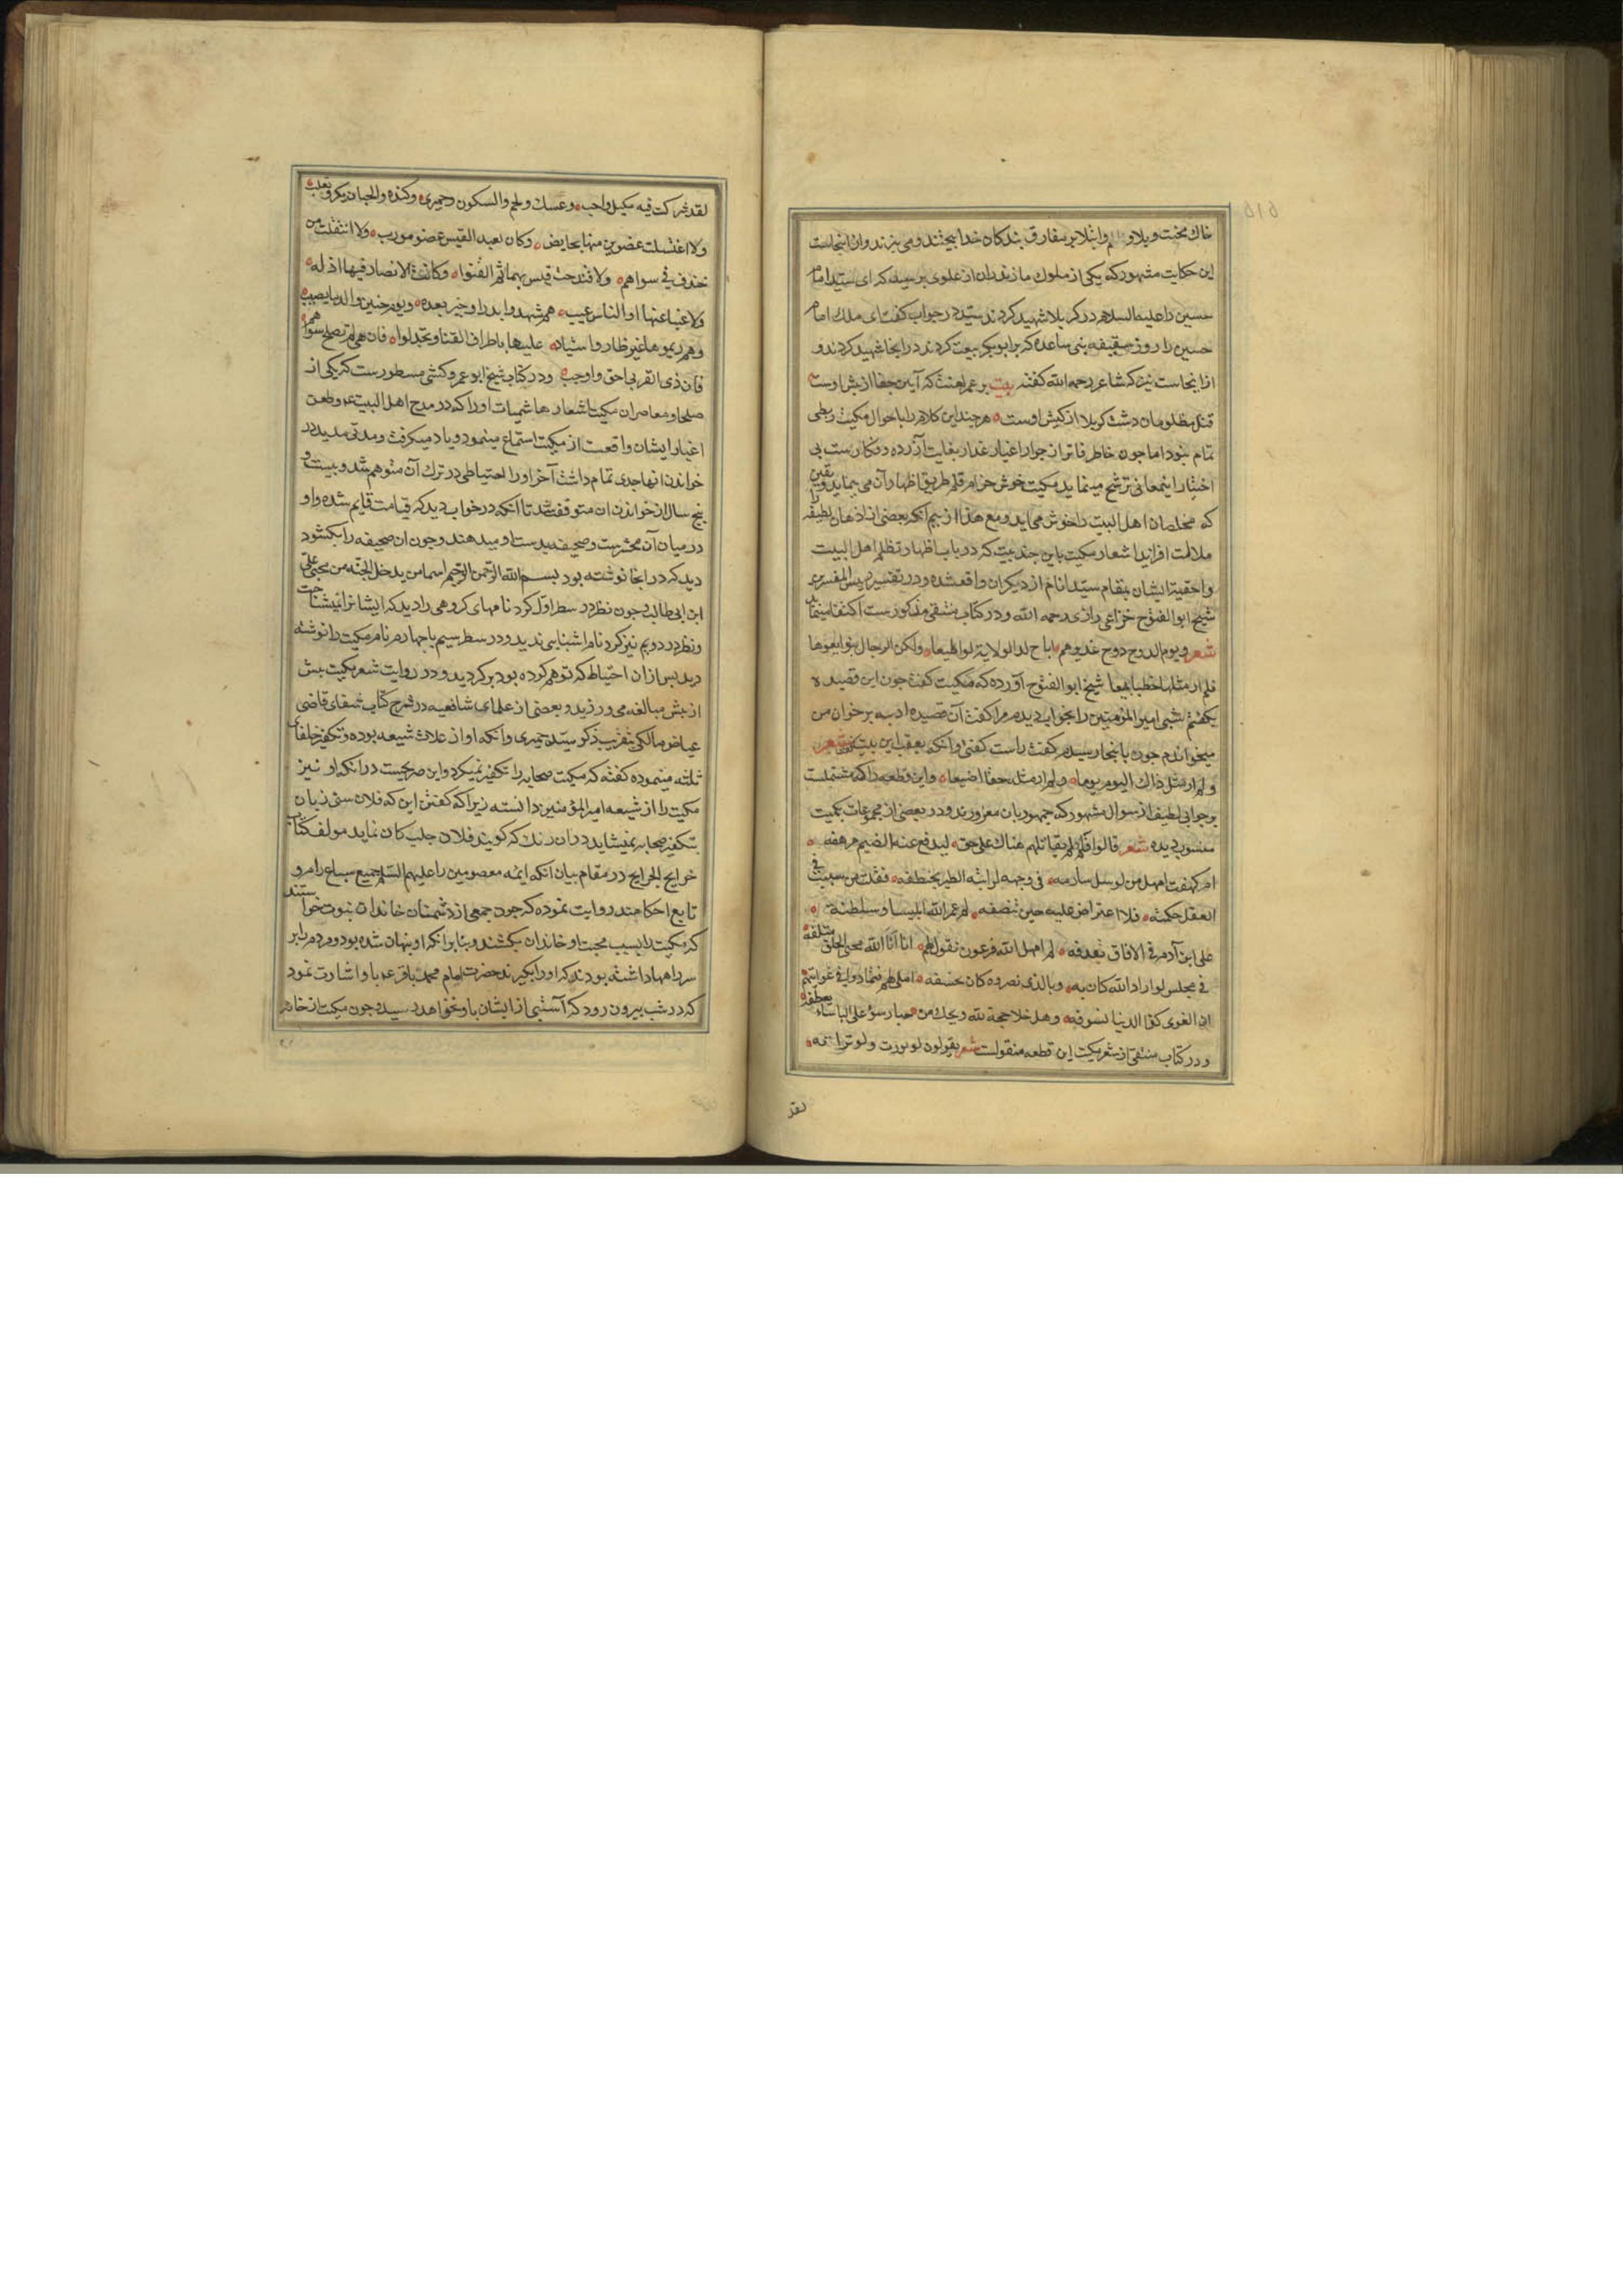 خاك محنت و بلا و وابتلا بر مفارق بندكان خدا بيختند و مى بيزند و از اينجاست
اين حكايت مشهور كه يكى از ملوك مازندران از علوى پرسيد كه اى سيد امام
حسين را عليه السلام در كربلا شهيد كردند سيد در جواب كفت اى ملك امام
حسين را روز سقيفه بنى ساعده كه برابوبكر بيعت كردند در انجا شهيد كردند و
ازاينجاست نيز كه شاعر رحمه الله كفته بيت بر عمر لعنت كه آيين جفا از پيش اوست
قتل مظلومان دشت كربلا از كيش اوست هر چند اين كلام را باحوال مكيت ربطى
تمام نبود اما جون خاطر فاتر از جوار اغيار غدار بغايت آزرده و فكارست بى
اختيار اينمعانى ترشح مينمايد مكيت خوش خرام قلم طريق اظهار آن مى پيمايد ويقين
كه مخلصان اهل البيت را خوش مى ايد ومع هذا از بيم آنكه بعضى از اذهان لطيفه را
ملالت افزايد اشعار مكيت باين جند بيت كه در باب اظهار تظلم اهل البيت
واحقية ايشان بمقام سيد انام از ديكران واقع شده و در تفسير رييس المفسرين
شيخ ابوالفتوح خزاعى رازى رحمه الله و در كتاب منتقى مذكورست اكتفا مينمايد
شعر ويوم الدوح دوح غدير هم اباح له الولاية لو اطيعا ولكن الرجال تبوايعوها
فلم ار مثلها خطبا بيعا شيخ ابوالفتوح آورده كه مكيت كفت جون اين قصيده
بكفتم شبى امير المؤمنين را بخواب ديدم مرا كفت آن قصيده ادبيه برخوان من
ميخواندم جون بانجا رسيدم كفت راست كفتى وآنكه بعقب اين بيت كفتى شعر
ولم ار مثل ذاك اليوم يوما ولم ار مثله حقا اضيعا واين قطعه را كه مشتملست
بر جوابى لطيف از سوال مشهور كه جمهور بان مغرورند و در بعضى از مجموعات بمكيت
منسوب ديده شعر قالوا فلم لم يقاتلهم هناك على حق ليدفع عنه الضيم مرهفه
ام كيف امهل من لوسل سارمه فى وجهه لرايته الطير يخطفه فقلت من سببت فى
العقل حكمته فلا اعتراض عليه حين تنصفه لم عمر الله ابليسا وسلطنه
على ابن آدم فى الافاق نعدفه لم امهل الله فرعون نقول لهم انا انا الله محى الخلق متلفه
فى مجلس لو اراد الله كان به وبالذى نصره كان بخسفه املى لهم فتمادوا فى غوايتهم
ان الغوى كذا الدنيا تسوفه وهل خلا حجة لله ويحك من جبار سؤ على الباساء يعطفه
و در كتاب منتقى از شعر مكيت اين قطعه منقولست شعر يقولون لو يورث ولو تراثه
لقد
لقد شركت فيه بكيل وارحب وعسك ولخم والسكون وحميرى وكنده والحيان بكر وتغلب
ولا اغتسلت عضوين منها بحابض وكان لعبد القيس عضو مورب ولا انتقلت من
خندف فى سواهم ولا قتدحت قيس بهما ثم القنوا وكانت الانصار فيها اذله
ولا غيبا عنها اوالناس غيب هم شهدوا بدرا وخيبر بعده ويوم حنين والدما يصبب
وهم ريموها غير ظار واشياه عليها باطراف القنا وتحدلوا فان هى لم تصلح سواهم
فان ذى القربى احق واوجب و در كتاب شيخ ابو عمرو كشى مسطورست كه يكى از
صلحا ومعاصران مكيت اشعار هاشميات او را كه در مدح اهل البيت ع و طعن
اغيار ايشان واقعست از مكيت استماع مينمود و ياد ميكرفت ومدتى مديد در
خواندن انها جدى تمام داشت آخر او را احتياطى در ترك آن متوهم شد و بيست و
پنج سال از خواندن ان متوقف شد تا انكه در خواب ديد كه قيامت قايم شده و او
در ميان آن محشرست وصحيفه بدست او ميدهند وجون ان صحيفه را بكشود
ديد كه در انجا نوشته بود بسم الله الرحمن الرحيم اسما من يدخل الجنه من محبى على
ابن ابى طالب وجون نظر در سطر اول كرد نامهاى كروهى را ديد كه ايشانرا نميشناخت
ونظر در دويم نيز كرد نام اشنايى نديد و در سطر سيم يا جهارم نام مكيت را نوشته
ديد پس از ان احتياط كه توهم كرده بود بر كرديد و در روايت شعر مكيت بيش
از پيش مبالغه مى ورزيد و بعضى از علماى شافعيه در شرح كتاب شفاى قاضى
عياض مالكى بتقريب ذكر سيد حميرى وآنكه او از غلات شيعه بوده و تكفير خلفاى
ثلثه مينموده كفته كه مكيت صحابه را تكفير نميكرد واين صريحست در انكه او نيز
مكيت را از شيعه امير المؤمنين دانسته زيرا كه كفتن اين كه فلان سنى زبان
بتكفير صحابه نميشايد دران رنك كه كويند فلان جلب كان نمايد مولف كتاب
خرايج الجرايح در مقام بيان انكه ايمه معصومين را عليهم السلم جميع سباع رام و
تابع احكامند روايت نموده كه جون جمعى از دشمنان خاندان نبوت خواستند
كه مكيت را بسبب محبت او خاندان بكشند و بنابر انكه او پنهان شده بود و مردم را بر
سر راهها داشته بودند كه او را بكيرند حضرت امام محمد باقر ع باو اشارت نمود
كه در شب بيرون رود كه آسيبى از ايشان باو نخواهد رسيد وجون مكيت از خانه